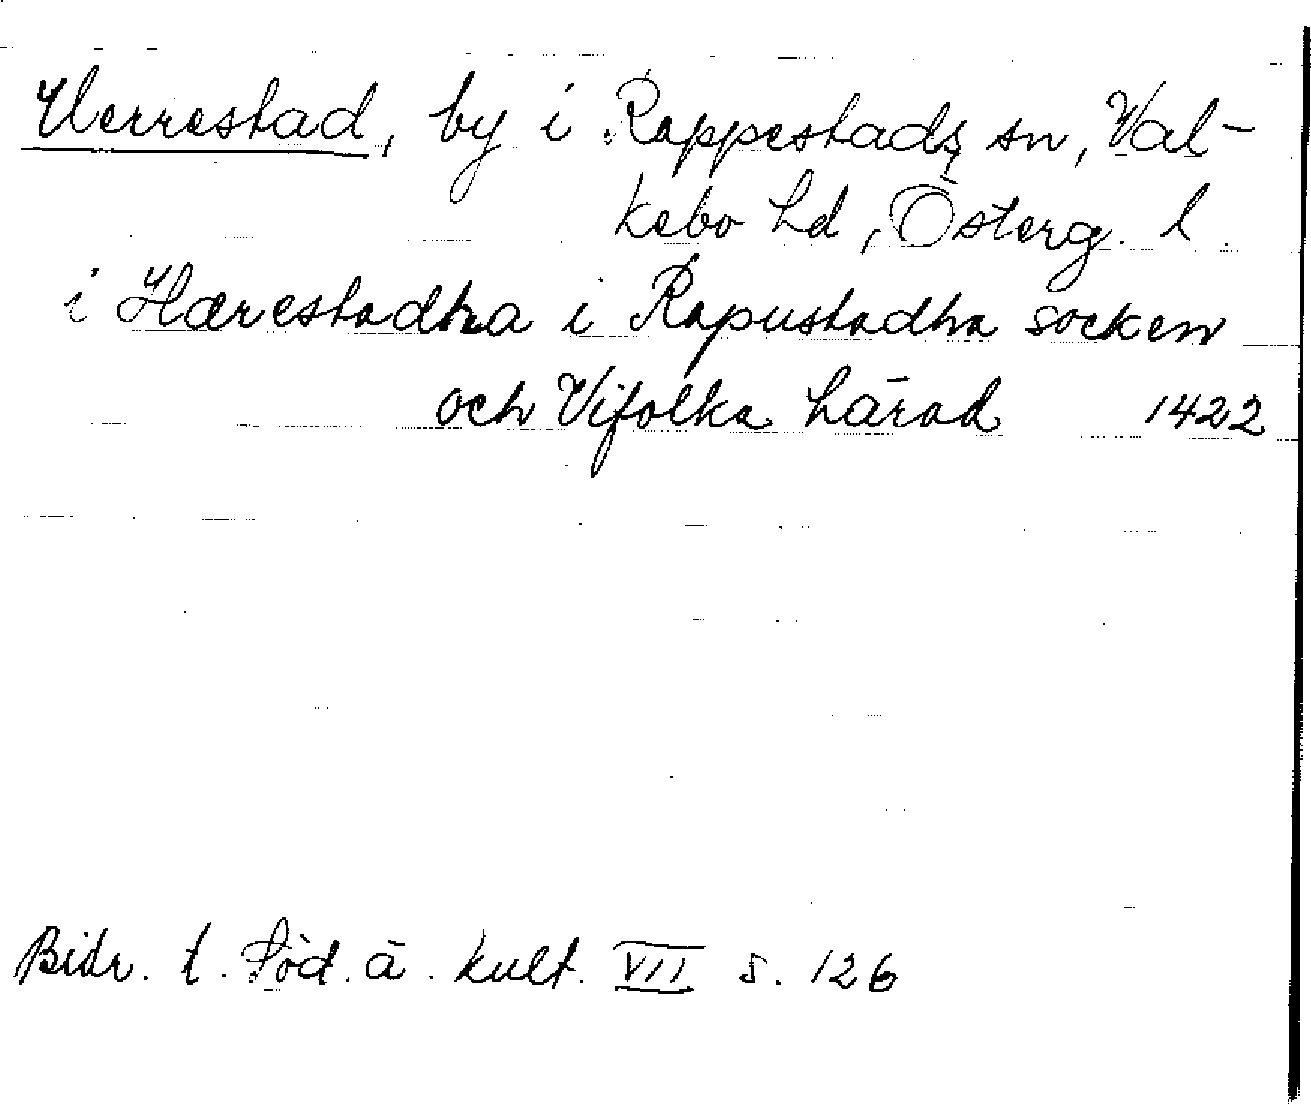 Herrestad, by i Rappestads sn, Val-
kebo hd, Österg. l.
i Hærestadha i Rapustadha socken
och Vifolka härad 1422
Bidr. t. Söd. ä. kult. VII s. 126